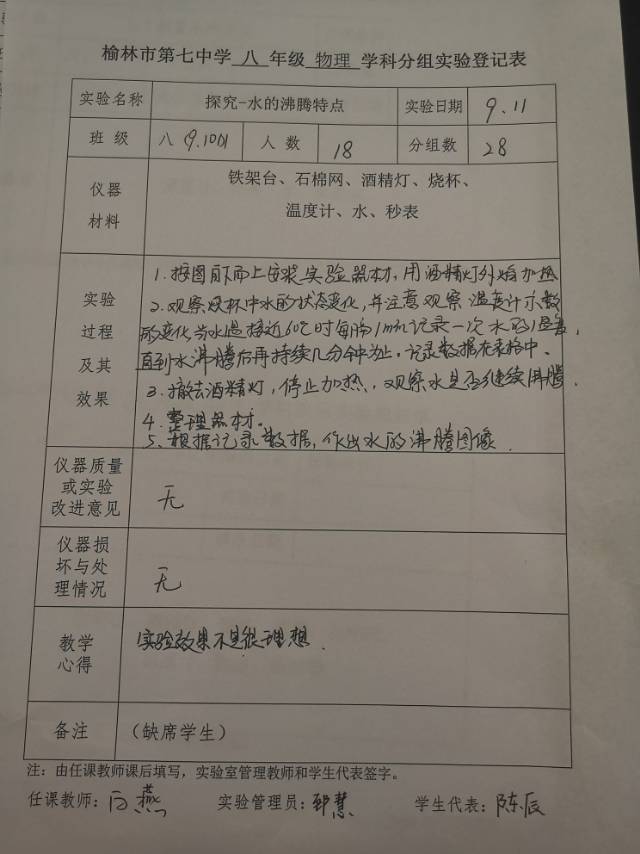 榆林市第七中学 八 年级 物理 学科分组实验登记表
实验名称 探究-水的沸腾特点 实验日期 9.11
班 级 八 人 数 18 分组数 28
仪器
材料
铁架台、石棉网、酒精灯、烧杯、
温度计、水、秒表
实验
过程
及其
效果
1.按图自下而上安装实验器材,用酒精灯外焰加热
2.观察烧杯中水的状态变化,并注意观察温度计示数
的变化,当水温接近 时每隔1min记录一次水的温度,
直到水沸腾后再持续几分钟为止,记录数据在表格中.
3.撤去酒精灯,停止加热,观察水是否继续沸腾.
4.整理器材。
5.根据记录数据,作出水的沸腾图像.
仪器质量
或实验
改进意见
无
仪器损
坏与处
理情况
无
教学
心得
实验效果不是很理想.
备注 (缺席学生)
注:由任课教师课后填写,实验室管理教师和学生代表签字。
任课教师:白燕 实验管理员: 慧 学生代表:陈辰